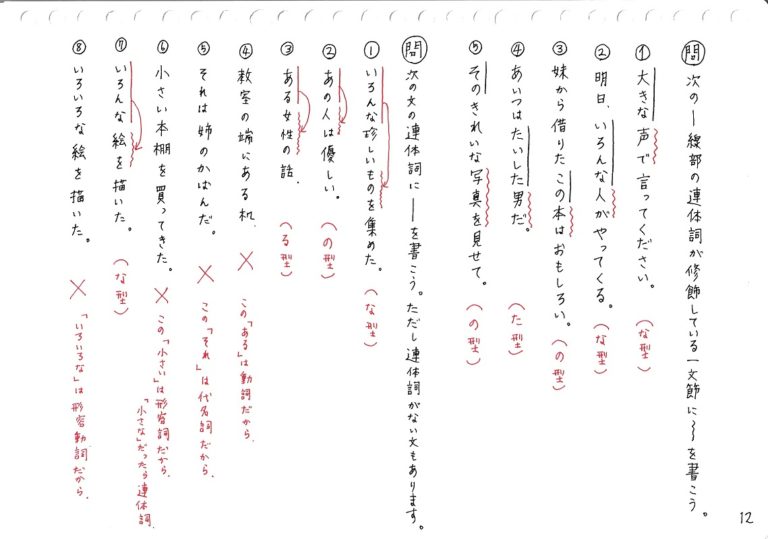 問 次の―線部の連体詞が修飾している一文節に〜〜を書こう。
① 大きな声で言ってください。 (な型)
② 明日、いろんな人がやってくる。 (な型)
③ 妹から借りたこの本はおもしろい。 (の型)
④ あいつはたいした男だ。 (た型)
⑤ そのきれいな写真を見せて。 (の型)
問 次の文の連体詞に―を書こう。ただし連体詞がない文もあります。
① いろんな珍しいものを集めた。 (な型)
② あの人は優しい。 (の型)
③ ある女性の話. (る型)
④ 教室の端にある机. × この「ある」は動詞だから.
⑤ それは姉のかばんだ。 × この「それ」は代名詞だから.
⑥ 小さい本棚を買ってきた。 × この「小さい」は形容詞だから.
「小さな」だったら連体詞.
⑦ いろんな絵を描いた。 (な型)
⑧ いろいろな絵を描いた。 × 「いろいろな」は形容動詞だから.
12